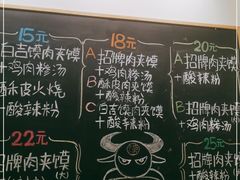 15元
白吉馍肉夹馍
+鸡肉糁汤
酥皮火烧
+酸辣粉
18元
A 招牌肉夹馍
+鸡肉糁汤
B 酥皮肉夹馍
+酸辣粉
C 白吉馍肉夹馍
+酸辣粉
20元
招牌肉夹馍
+酸辣粉
22元
招牌肉夹馍
25元
招牌肉夹馍
(大)